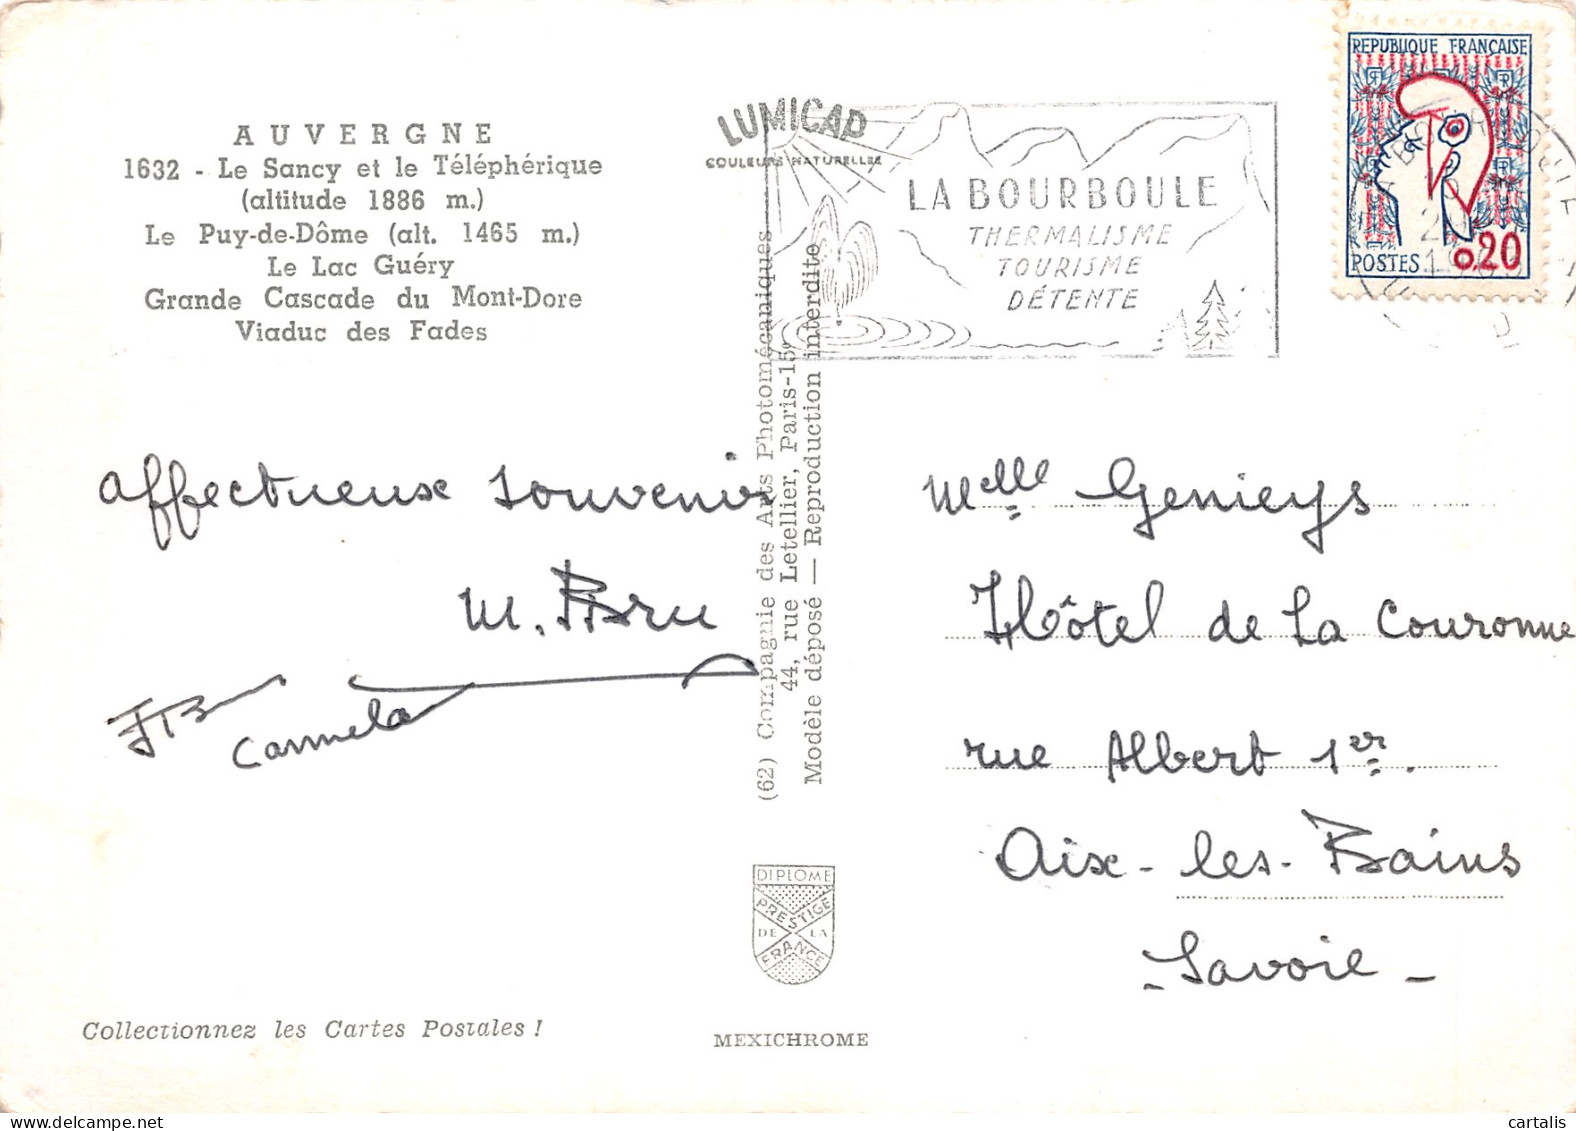 AUVERGNE
1632 - Le Sancy et le Téléphérique
(altitude 1886 m.)
Le Puy-de-Dôme (alt. 1465 m.)
Le Lac Guéry
Grande Cascade du Mont-Dore
Viaduc des Fades
LUMICAP
COULEURS NATURELLES
LA BOURBOULE
THERMALISME
TOURISME
DÉTENTE
REPUBLIQUE FRANÇAISE
POSTES 0,20
affectueux souvenir
M. Bru
Carmela
(62) Compagnie des Arts Photomécaniques
44, rue Letellier, Paris-15e
Modèle déposé — Reproduction interdite
Melle Genieys
Hôtel de La Couronne
rue Albert 1er.
Aix-les-Bains
- Savoie -
DIPLOME
PRESTIGE
DE LA
FRANCE
Collectionnez les Cartes Postales !
MEXICHROME
cartalis